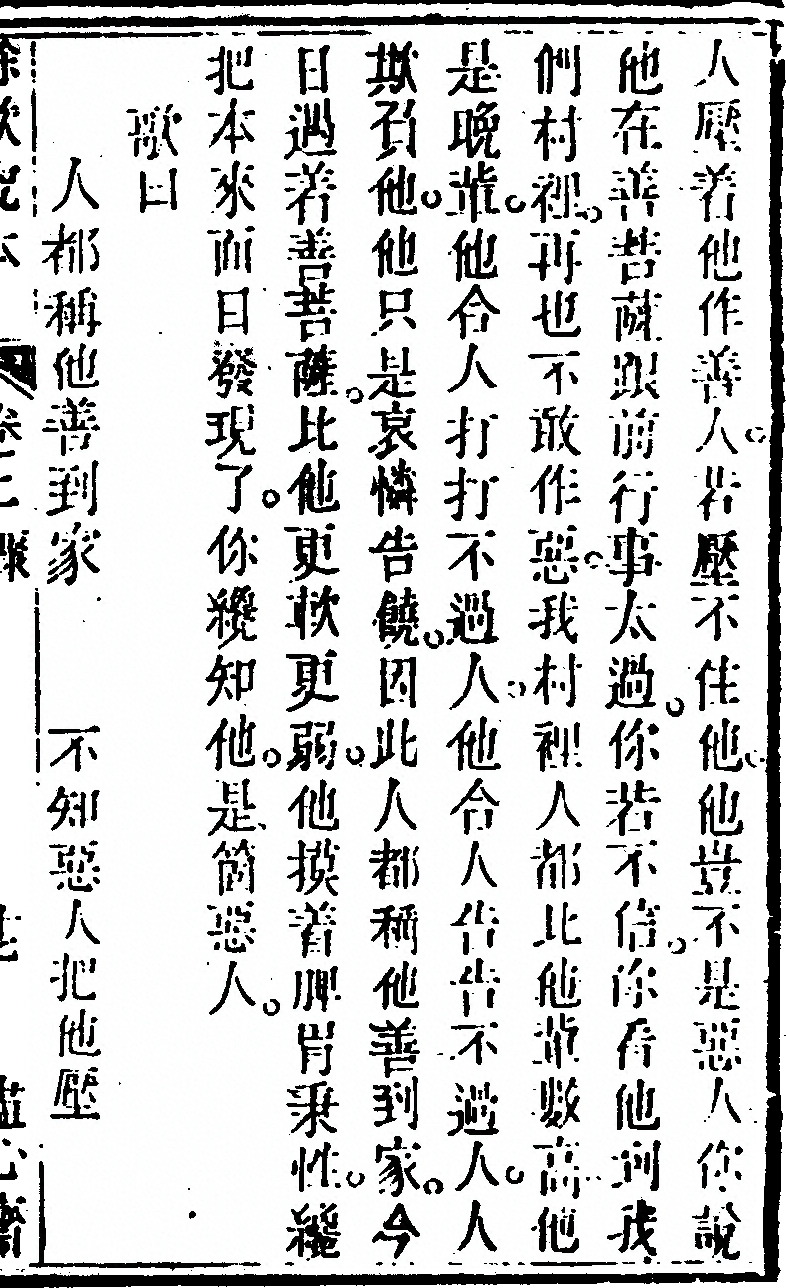 人壓着他作善人。若壓不住他。他豈不是惡人你說
他在善菩薩跟前行事太過。你若不信。你看他到我
們村裡。再也不敢作惡。我村裡人都比他輩數高他
是晚輩。他合人打打不過人。他合人告告不過人。人
欺負他。他只是哀憐告饒。因此人都稱他善到家。今
日遇着善菩薩。比他更軟更弱。他摸着脾胃秉性。纔
把本來面目發現了。你纔知他。是箇惡人。
歌曰
人都稱他善到家　不知惡人把他壓